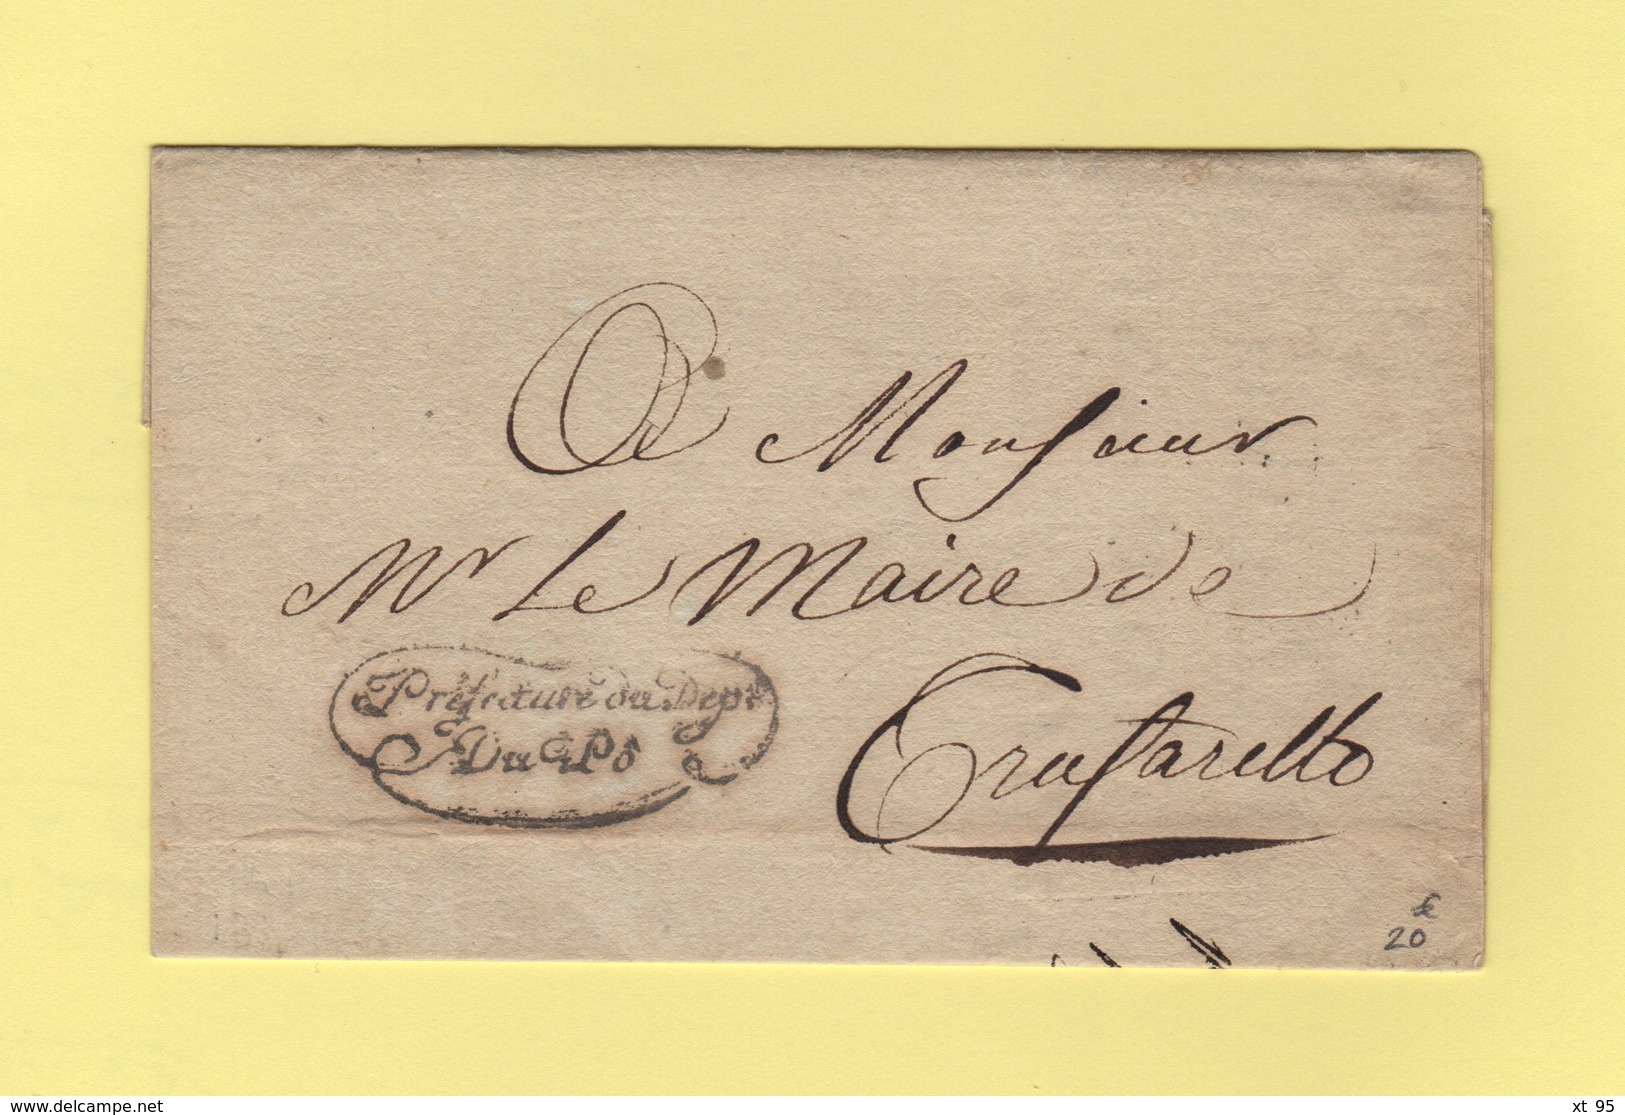 A Monsieur
Mr Le Maire de
Préfecture du Dept
Du Pô
Trufarello
€
20
www.delcampe.net
xt 95